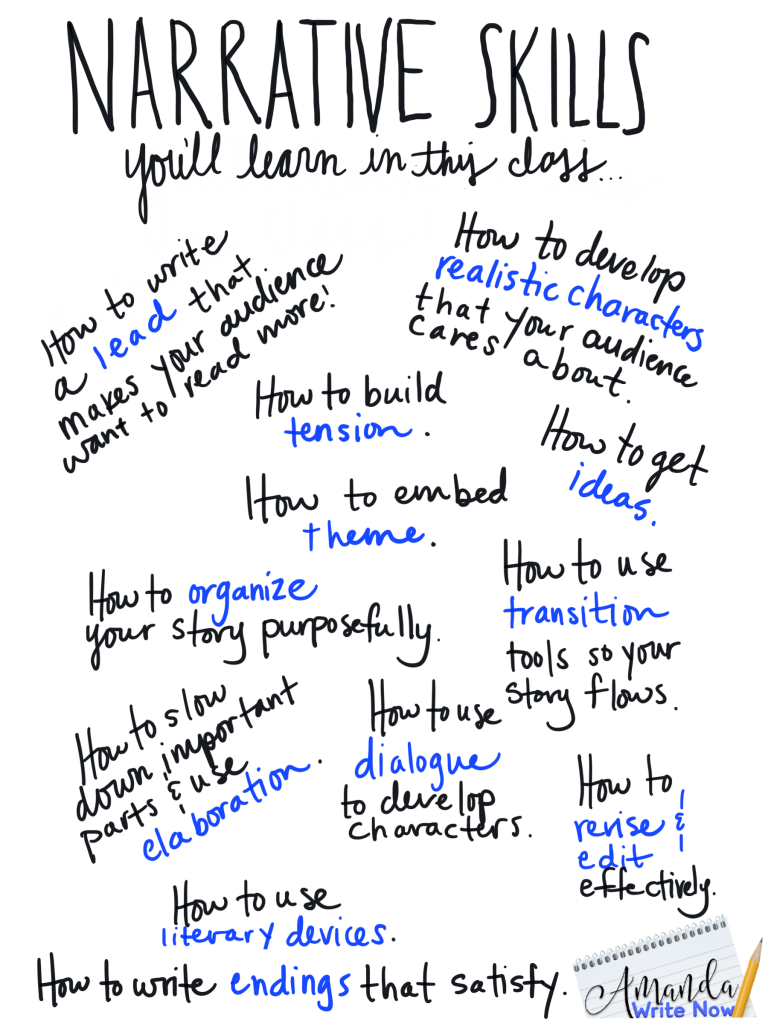 NARRATIVE SKILLS
you'll learn in this class...
How to write
a lead that
makes your audience
want to read more!
How to develop
realistic characters
that your audience
cares about.
How to build
tension.
How to get
ideas.
How to embed
theme.
How to organize
your story purposefully.
How to use
transition
tools so your
story flows.
How to slow
down important
parts & use
elaboration.
How to use
dialogue
to develop
characters.
How to
revise &
edit
effectively.
How to use
literary devices.
How to write endings that satisfy.
Amanda
Write Now